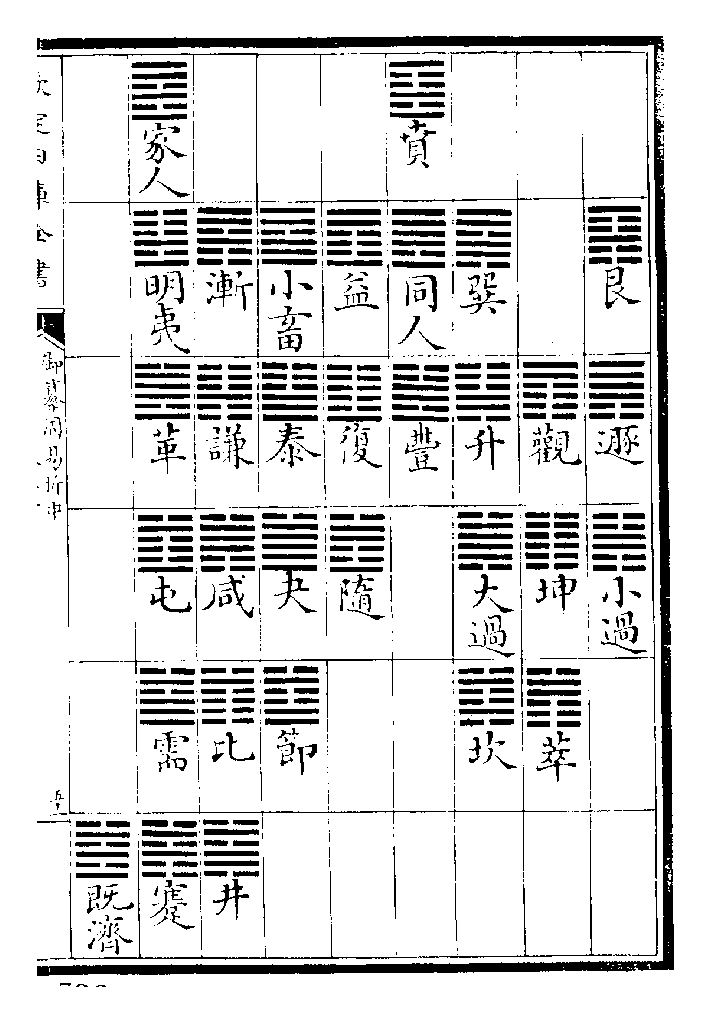 艮 遯 小過
觀 坤 萃
巽 升 大過 坎
賁 同人 豐
益 復 隨
小畜 泰 夬 節
漸 謙 咸 比 井
家人 明夷 革 屯 需 蹇
既濟
欽定四庫全書
御纂周易折中